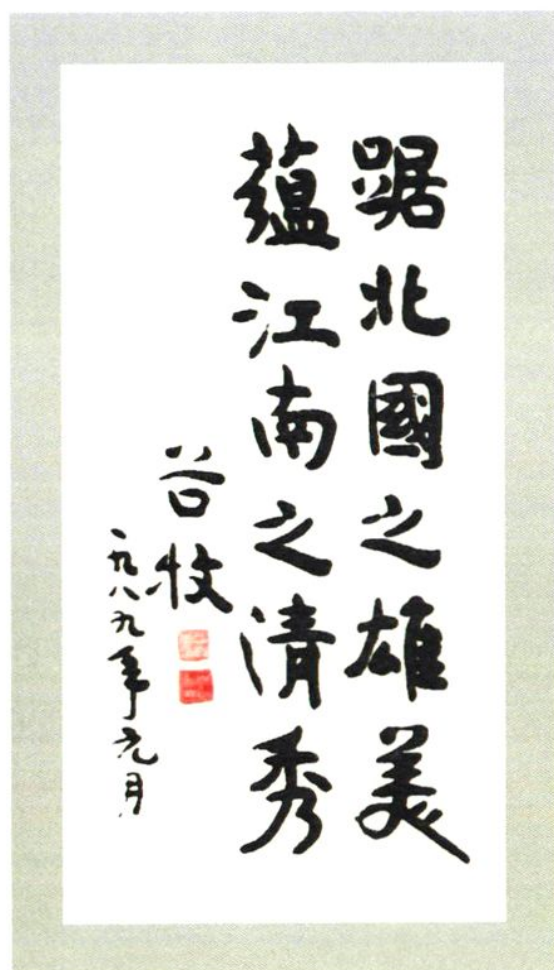 踞北國之雄美
蘊江南之清秀
谷牧
一九八九年元月